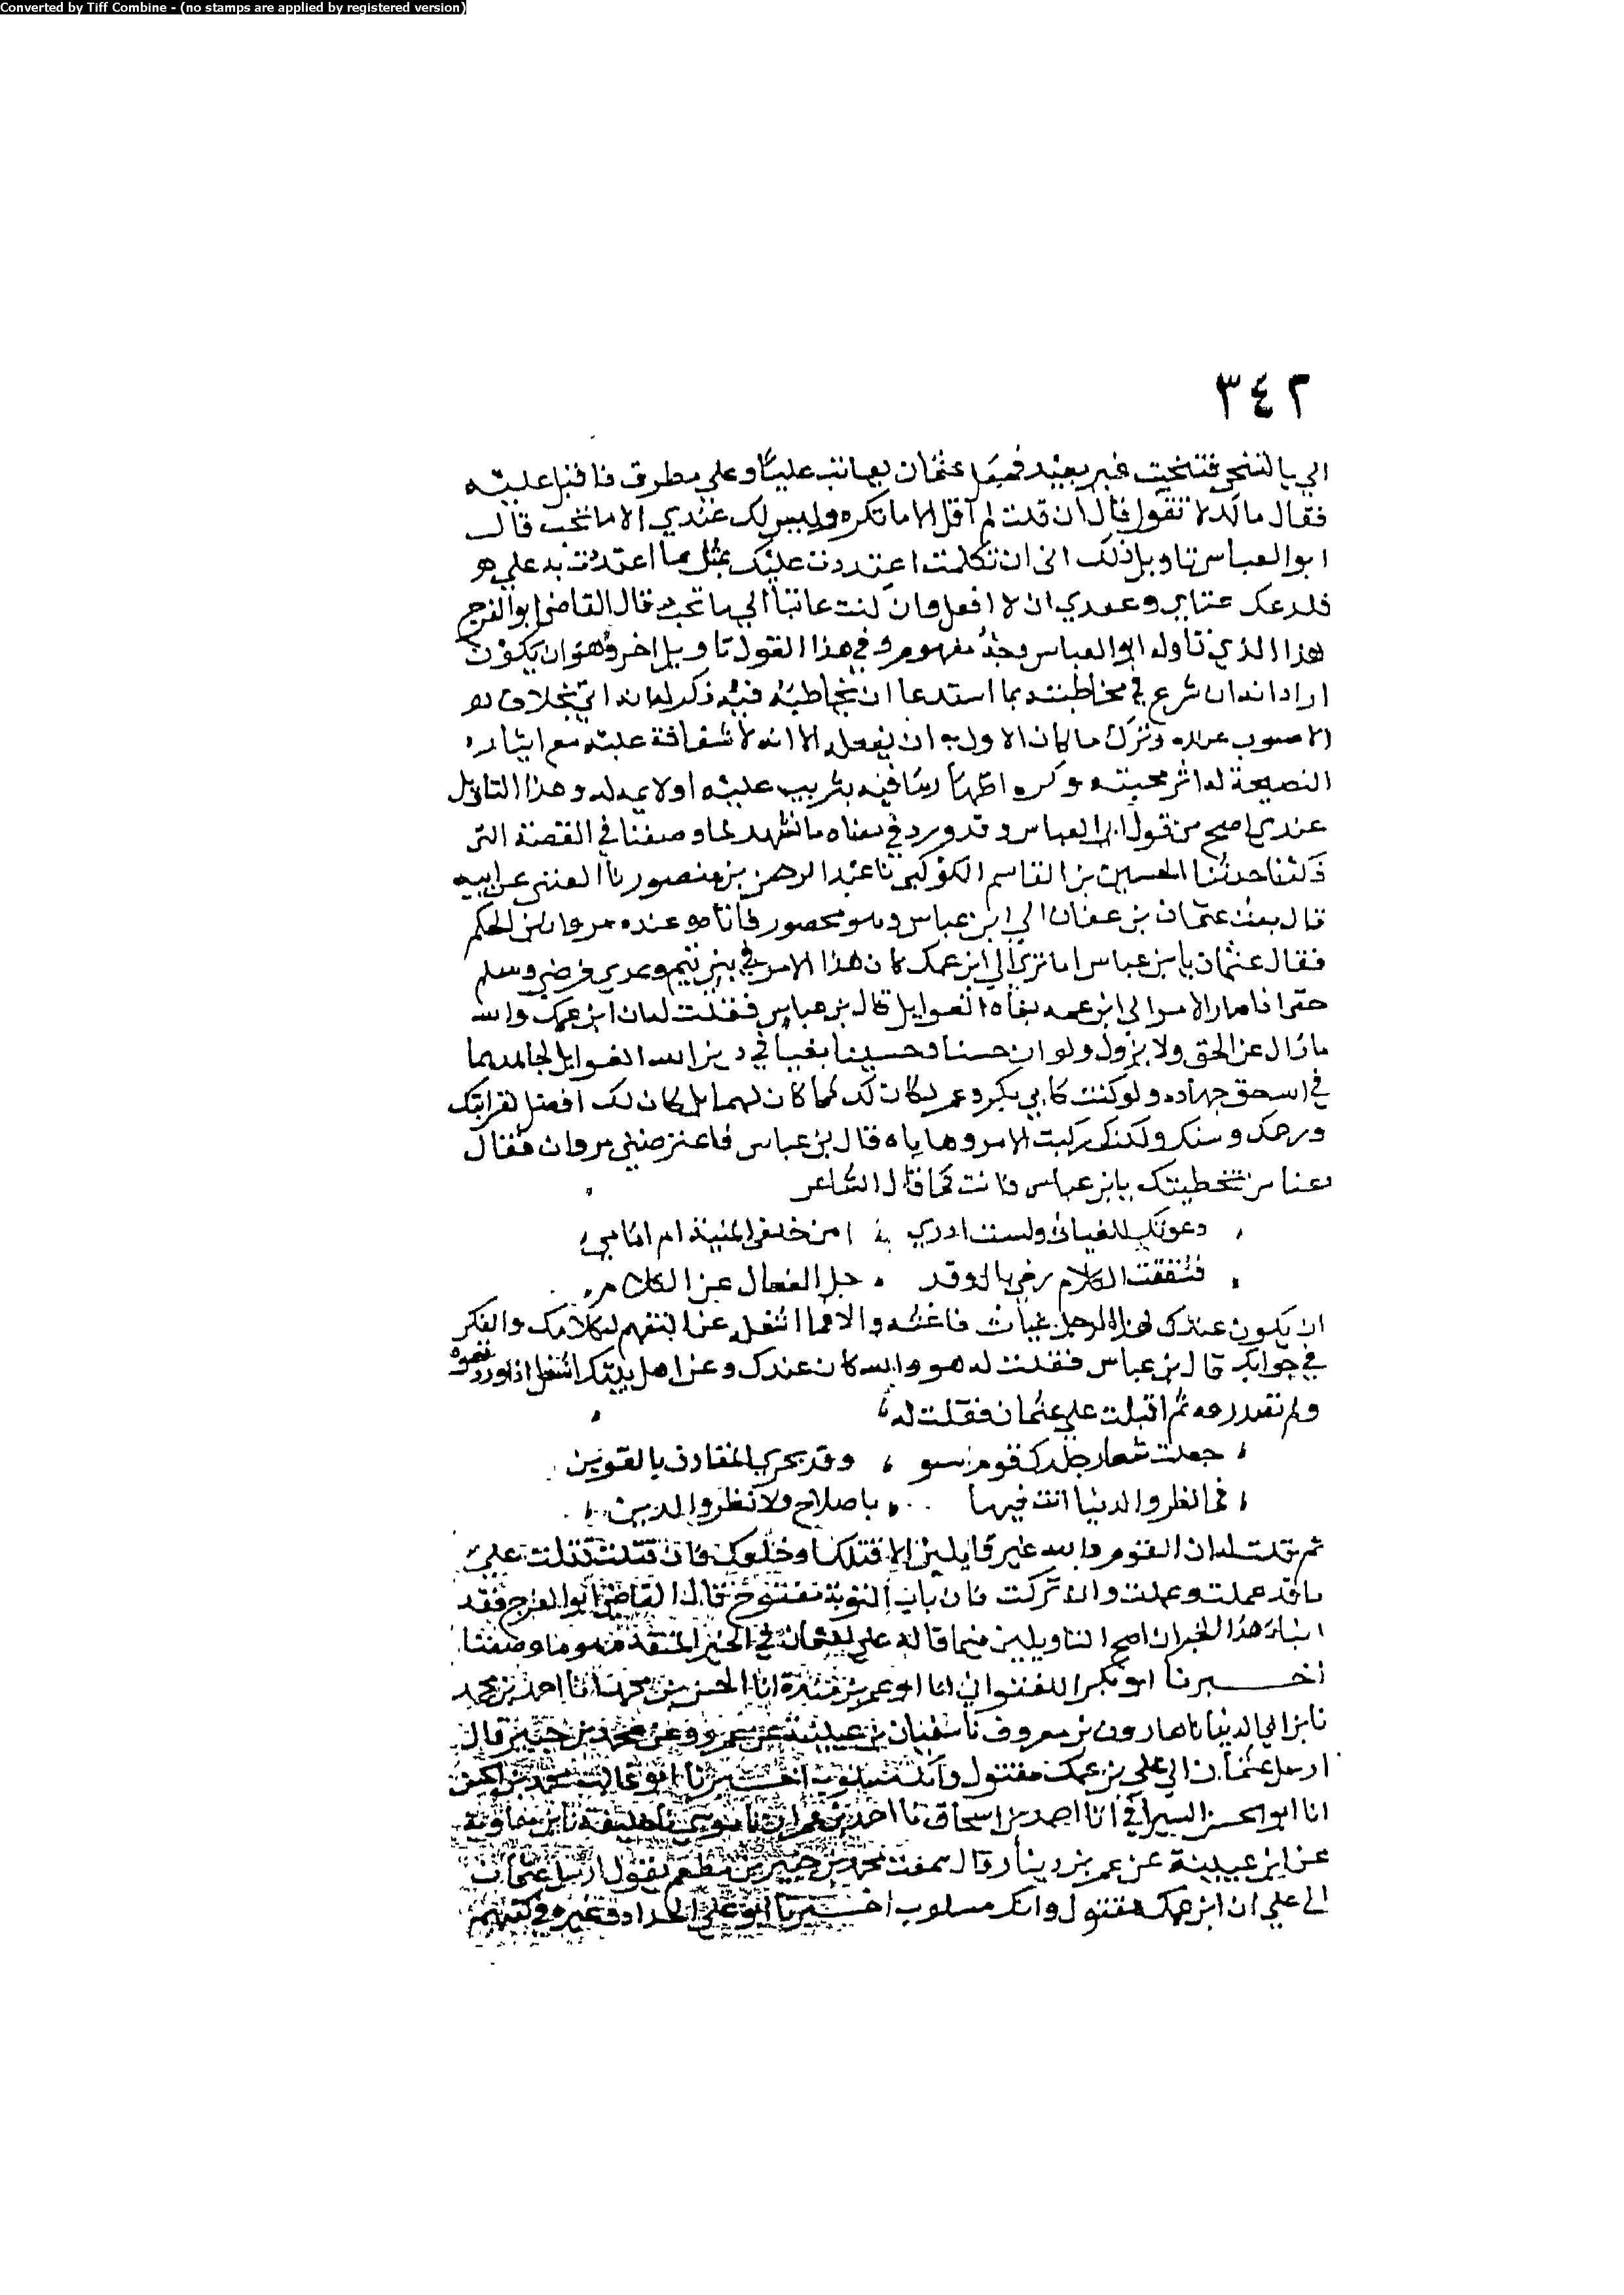 Converted by Tiff Combine - (no stamps are applied by registered version)
٣٤٢
الي بالتنحي فتنحيت غير بعيد فجعل عثمان يعاتب عليا وعلي مطرق فاقبل عليه
فقال مالك لا تقول قال ان قلت لم اقل الا ما تكره وليس لك عندي الا ما تحب قال
ابو العباس تاويل ذلك اني ان تكلمت اعتددت عليك بمثل ما اعتددت به علي
فلدعك عتابي وعقدي ان لا افعل وان كنت عاتبا الي ما تحب قال القاضي ابو الفرج
هذا الذي تاوله ابو العباس وجه مفهوم وفي هذا القول تاويل اخر وهو ان يكون
اراد انه ان شرع في مخاطبته بما استدعا ان يخاطبه فيه ذكر له انه اتي بخلاف
الاصوب وترك ما كان الاولي به ان يفعله الا انه لاشفاقه عليه مع ايثاره
النصيحة له اثر محبته وكره اظهار ما فيه تثريب عليه او لايمة له وهذا التاويل
عندي اصح من قول ابي العباس وقد ورد في معناه ما يشهد لما وصفنا في القصة التي
ذكرنا حدثنا الحسين بن القاسم الكوكبي نا عبد الرحمن بن منصور نا العتبي عن ابيه
قال بعث عثمان بن عفان الي ابن عباس وهو محصور فاتاه وعنده مروان بن الحكم
فقال عثمان يا بن عباس اما تري الي ابن عمك كان هذا الامر في بني تيم وعدي فرضي وسلم
حتى اذا صار الامر الي ابن عمه بغاه الغوايل قال بن عباس فقلت له ان ابن عمك والله
ما زال عن الحق ولا يزول ولو ان حسنا وحسينا بغيا في دين الله الغوايل لجاهدهما
في الله حق جهاده ولو كنت كابي بكر وعمر لكان لك كما كان لهما بل كان لك افضل لقرابتك
ورحمك وسنك ولكنك ركبت الامر وهاباه قال بن عباس فاعترضني مروان فقال
دعنا من تخطيتك يا بن عباس فانت كما قال الشاعر
دعوتك للغياث ولست ادري امن خلفي المنية ام امامي
فشققت الكلام رخي بال وقد جل الفعال عن الكلام
ان يكون عندك لهذا الرجل غياث فاغثه والا فما اشغله عن التفهم لكلامك والفكر
في جوابك قال بن عباس فقلت له هو والله كان عندك وعن اهل بيتك اشغل اذ اوردتموه
ولم تصدروه ثم اقبلت علي عثمان فقلت له
جعلت شعار جلدك قوم سو وقد يجري المقارن بالقرين
فما نظروا لدنيا انت فيها باصلاح ولا نظروا لدين
ثم قلت له ان القوم والله غير قابلين الا قتلك او خلعك فان قتلت قتلت علي
ما قد عملت وعلمت وان تركت فان باب التوبة مفتوح قال القاضي ابو الفرج فقد
انبا هذا الخبر ان اصح التاويلين فيما قاله علي لعثمان في الخبر المتقدم هو ما وصفنا
اخبرنا ابو بكر اللفتواني انا ابو عمرو بن مندة انا الحسن بن محمد انا احمد بن محمد
نا بن ابي الدنيا نا هارون بن معروف نا سفيان بن عيينة عن عمرو عن محمد بن جبير قال
ارسل عثمان الي علي بن عمك مقتول وانك مسلوب اخبرنا ابو غالب محمد بن الحسن
انا ابو الحسن السيرافي انا احمد بن اسحاق نا احمد بن عمران نا موسي نا خليفة نا بن معاوية
عن ابن عيينة عن عمرو بن دينار قال سمعت محمد بن جبير بن مطعم يقول ارسل عثمان
الي علي ان ابن عمك مقتول وانك مسلوب اخبرنا ابو علي الحداد وغيره في كتبهم